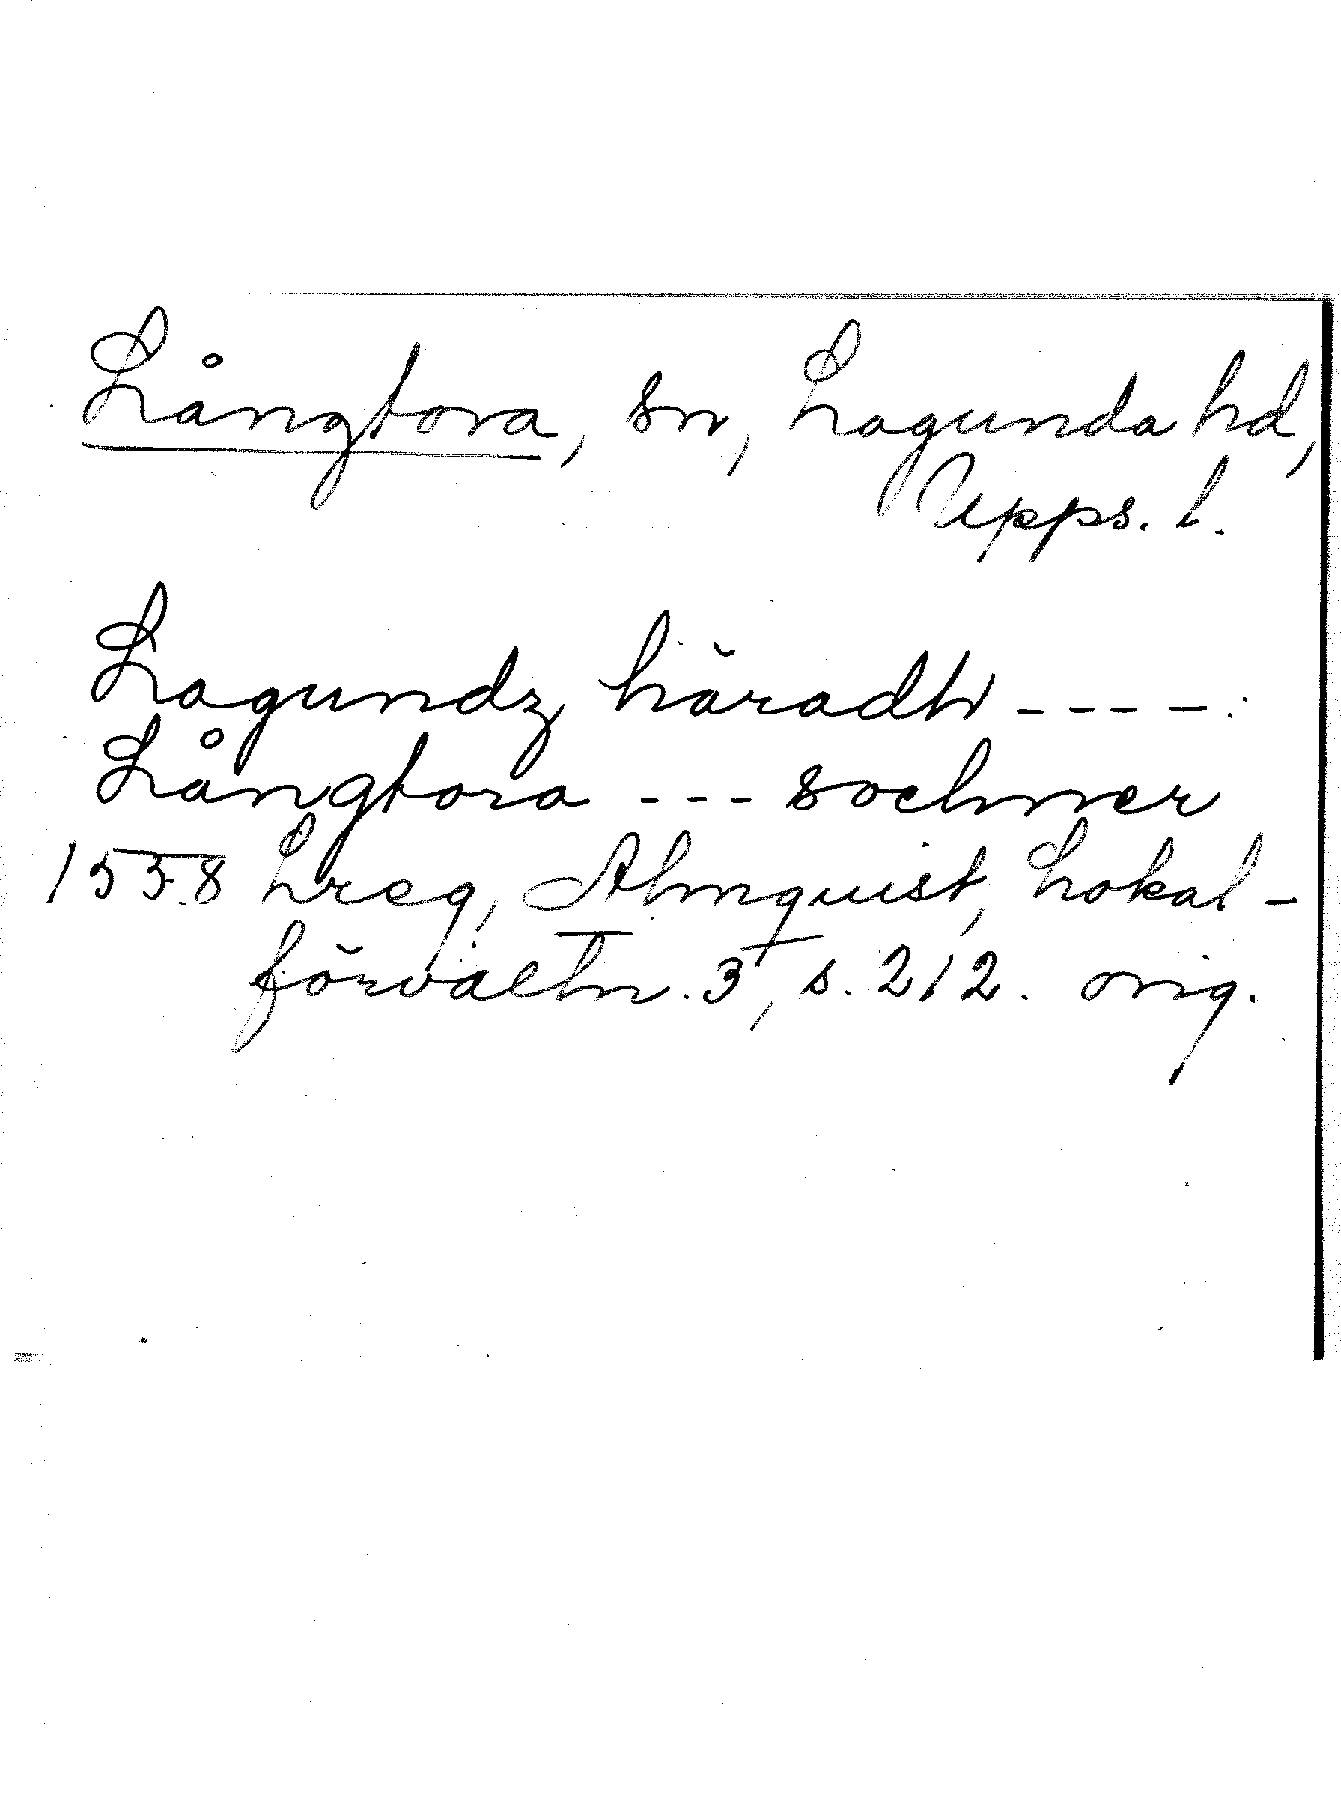 Långtora, sn, Lagunda hd,
Upps. l.
Lagundz häradh ----
Långtora --- sochner
1558 Lreg, Almquist, Lokal-
förvaltn. 3, s. 212. orig.